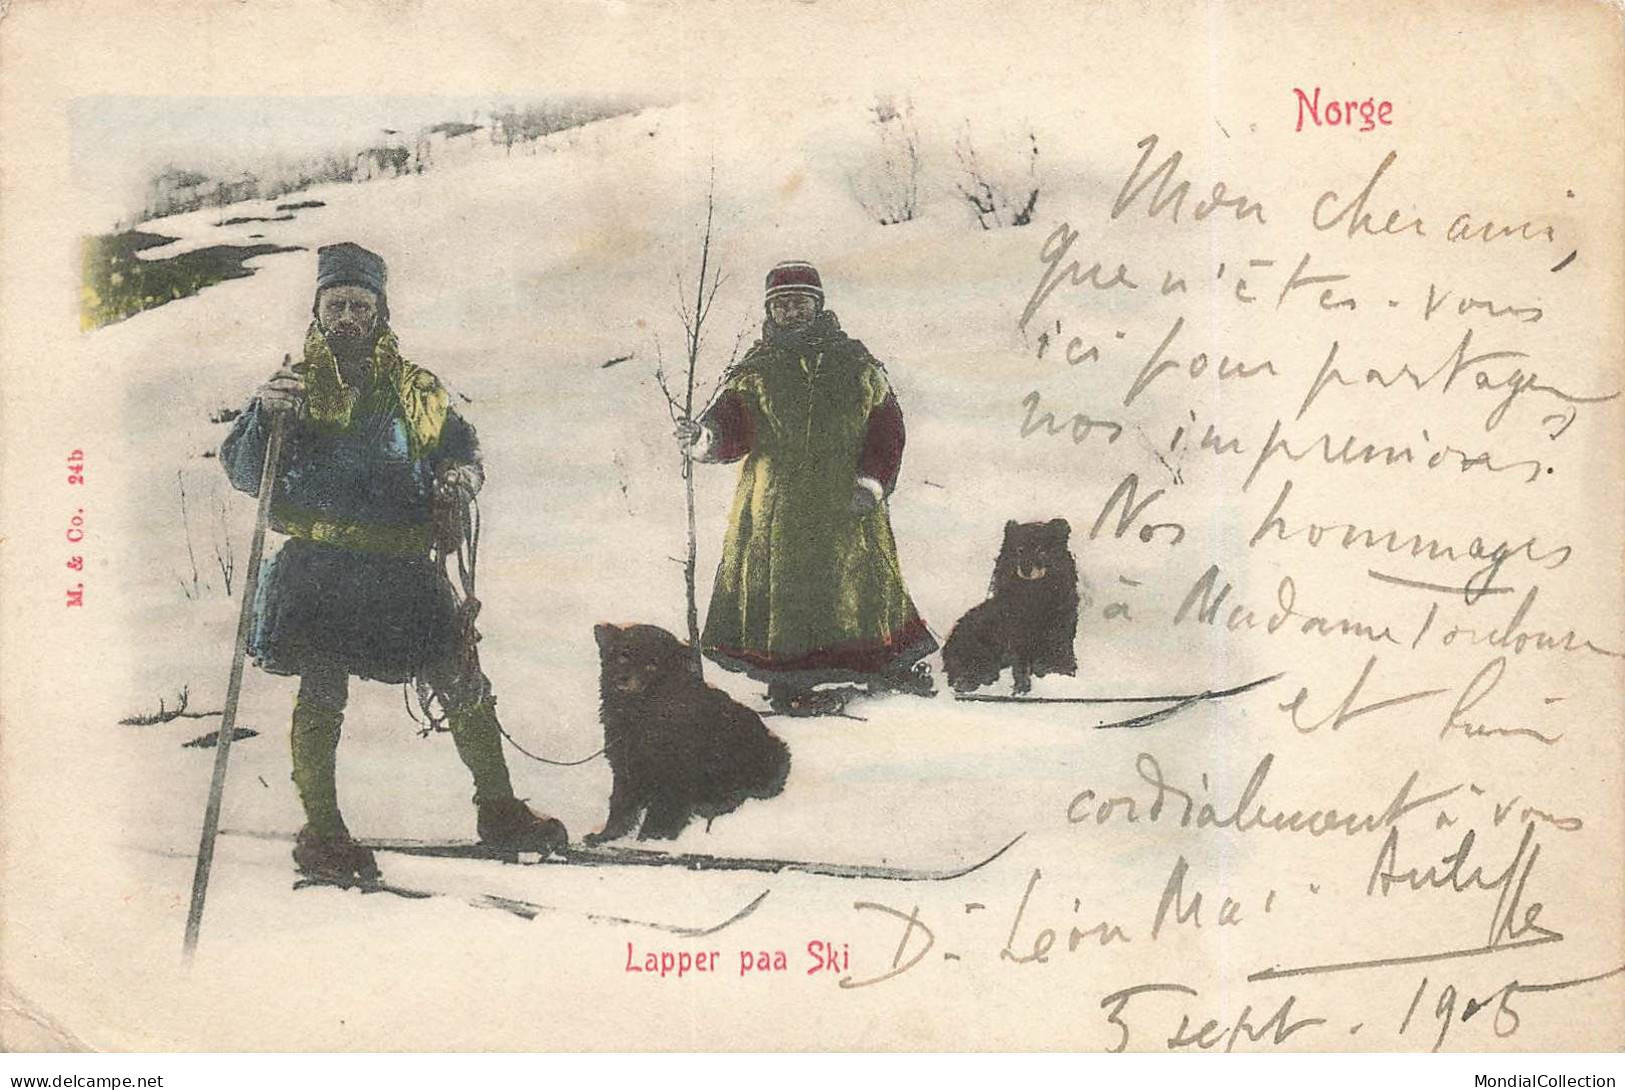 Norge
Mon cher ami,
que n'êtes-vous
ici pour partager
nos impressions.
Nos hommages
à Madame Toulouse
et bien
cordialement à vous
Dr Léon
5 sept. 1905
Lapper paa Ski
M. & Co. 24b
MondialCollection